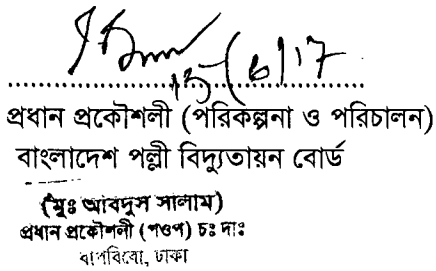 15/6/17
প্রধান প্রকৌশলী (পরিকল্পনা ও পরিচালন)
বাংলাদেশ পল্লী বিদ্যুতায়ন বোর্ড
(মুঃ আবদুস সালাম)
প্রধান প্রকৌশলী (পওপ) চঃ দাঃ
বাপবিবো, ঢাকা